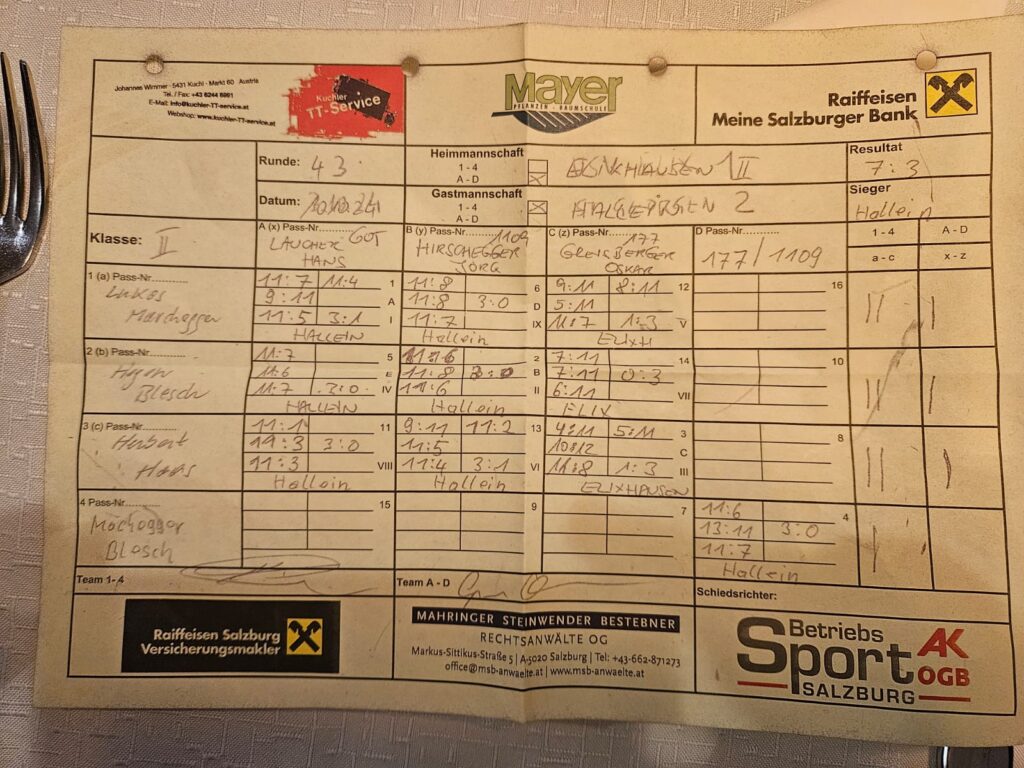 Johannes Wimmer · 5431 Kuchl · Markt 60 Austria
Tel. / Fax: +43 6244 6991
E-Mail: info@kuchler-TT-service.at
Webshop: www.kuchler-TT-service.at
Kuchler
TT-Service
Mayer
PFLANZEN · BAUMSCHULE
Raiffeisen
Meine Salzburger Bank
Runde: 43
Heimmannschaft
1 - 4
A - D
II
Resultat
7:3
Datum:
Gastmannschaft
1 - 4
A - D
2
Sieger
Hallein
Klasse: II
A (x) Pass-Nr
HANS
B (y) Pass-Nr 1109
HIRSCHEGGER
JÖRG
C (z) Pass-Nr 177
GREISBERGER
OSKAR
D Pass-Nr
177/1109
1 - 4
A - D
a - c
x - z
1 (a) Pass-Nr
Lukas
11:7 11:4 1
9:11 A
11:5 3:1 I
HALLEIN
11:8 6
11:8 3:0 D
11:7 IX
Hallein
9:11 8:11 12
5:11
11:7 1:3 V
ELIXH
16
II
I
2 (b) Pass-Nr
Blesch
11:7 5
11:6 E
11:7 3:0 IV
HALLEIN
11:6 2
11:8 3:0 B
11:6 II
Hallein
7:11 14
7:11 0:3
6:11 VII
ELIX
10
II
I
3 (c) Pass-Nr
Herbert
Haas
11:1 11
3:0
11:3 VIII
Hallein
9:11 11:2 13
11:5
11:4 3:1 VI
Hallein
4:11 5:11 3
10:12 C
11:8 1:3 III
ELIXHAUSEN
8
II
I
4 Pass-Nr
Blesch
15
9
7
11:6 4
13:11 3:0
11:7
Hallein
I
I
Team 1- 4
Team A - D
Schiedsrichter:
Raiffeisen Salzburg
Versicherungsmakler
MAHRINGER STEINWENDER BESTEBNER
RECHTSANWÄLTE OG
Markus-Sittikus-Straße 5 | A-5020 Salzburg | Tel: +43-662-871273
office@msb-anwaelte.at | www.msb-anwaelte.at
Betriebs
Sport
SALZBURG
AK
ÖGB